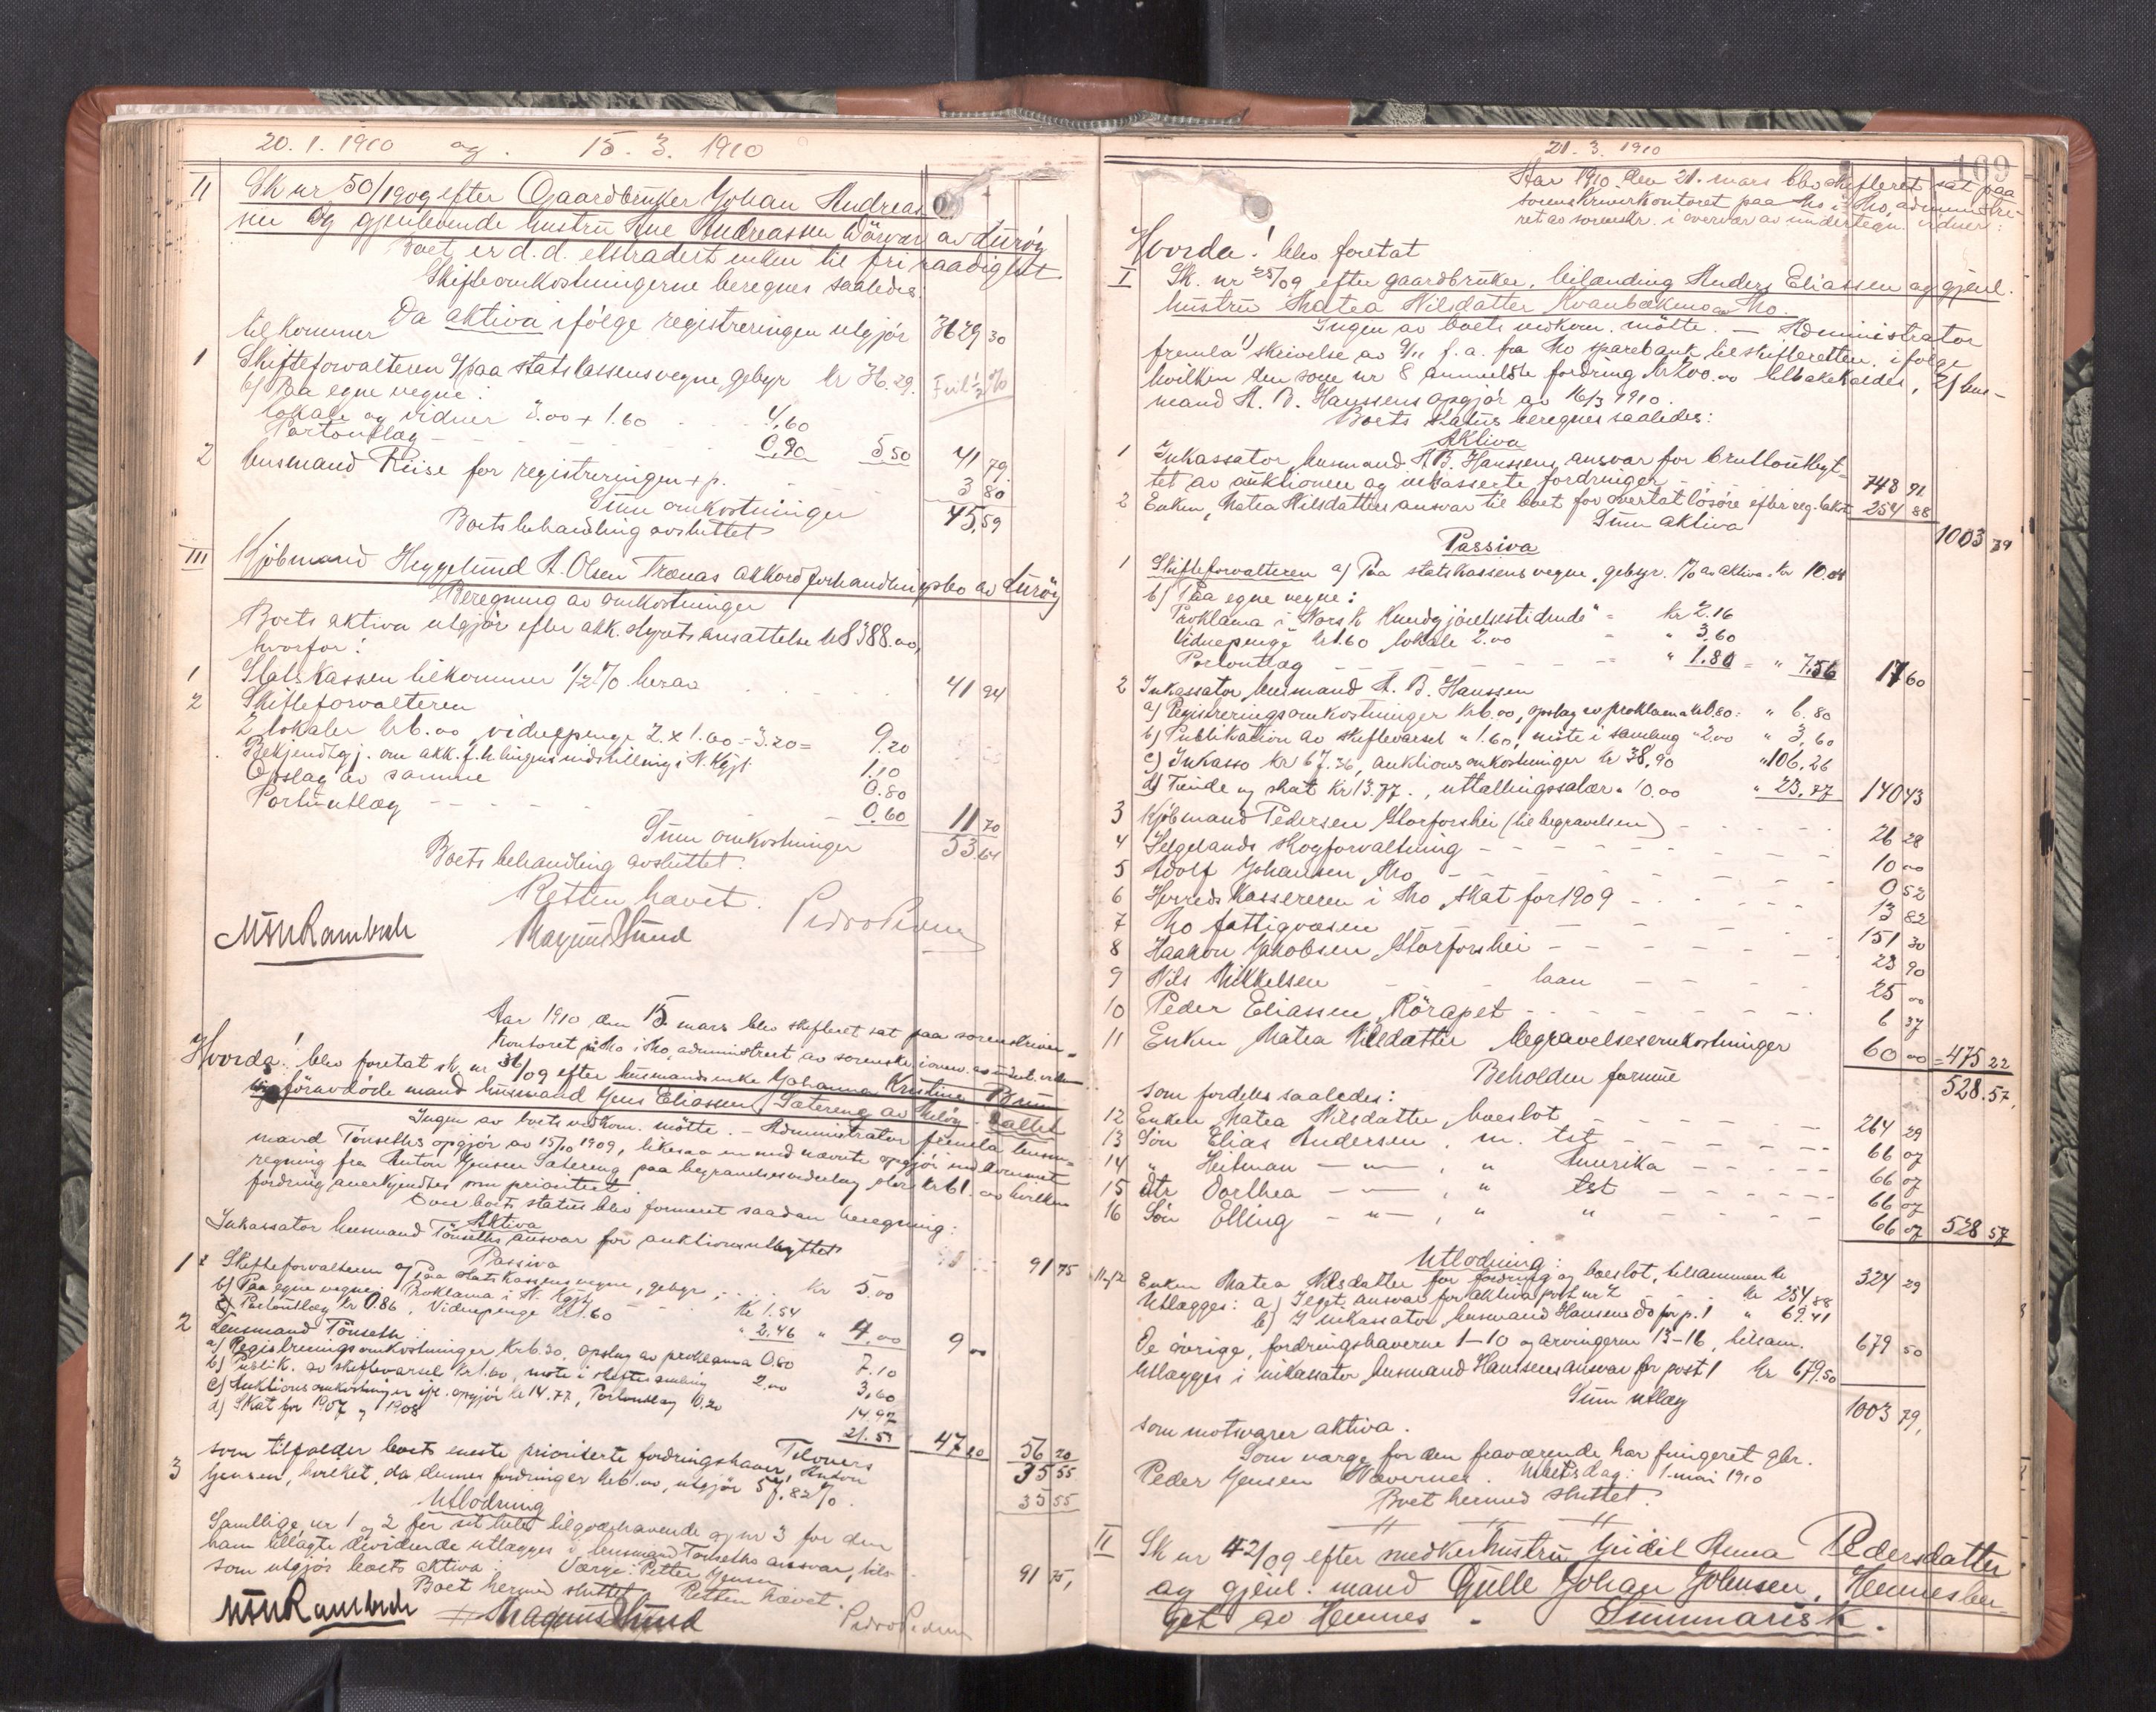 20. 1. 1910 og. 15. 3. 1910
II Sk nr 50/1909 efter Gaardbruker Johan Andreas
sen og gjenlevende hustru Ane Andreassen av Lurøy
Boet er d. d. elstradert enken til fri raadighet.
Skifteomkostningerne beregnes saaledes:
Da aktiva ifölge registreringen utgjör 3629 30
tilkommer
1 Skifteforvalteren a/ paa statskassens vegne, gebyr kr 36.29.
b/ Paa egne vegne:
lokale og vidner 3.00 + 1.60 4,60
Portoutlæg 0.90 5.50 41 79
2 lensmand Riise for registreringen + p. 3 80
Sum omkostninger 45,59
Boets behandling avsluttet
III Kjöbmand Heggelund A. Olsen Trænas akkordforhandlingsbo av Lurøy
Beregning av omkostninger
Boets aktiva utgjör efter akk. styrets ansættelse kr 8388.00,
hvorfor:
1 Statskassen tilkommer 1/2 % herav 41 94
2 Skifteforvalteren
2 lokaler kr 6.00, vidnepenge 2 x 1.60 = 3.20 = 9.20
Bekjendtgj. om akk. f.h.lingens indstilling i N. Kgjt 1.10
Opslag av samme 0.80
Portoutlæg 0.60 11 70
Sum omkostninger 53,64
Boets behandling avsluttet.
Retten hævet.
MSHRambech Magnus Lund Pedro Pedersen
Aar 1910 den 15. mars blev skifteret sat paa sorenskriver-
kontoret paa Mo i Mo, administrert av sorenskr. i overv. av undert. vidner
Hvorda! blev foretat sk. nr 36/09 efter husmandsenke Johanna Kristine
og föravdöde mand husmand Jens Eliassen, Sætereng av
Ingen av boets vedkom. mötte. - Administrator fremla lens-
mand Tönseths opgjör av 15/10 1909, likesaa en med nævnte opgjör indkommet
regning fra Anton Jensen Sætereng paa begravelsesutlæg stor kr 61.00 hvilken
fordring anerkjendtes som prioritert.
Over boets status blev formeret saadan beregning:
Aktiva
Inkassator lensmand Tönseths ansvar for auktionsutbyttet 91 75
Passiva
1 Skifteforvalteren a/ Paa statskassens vegne, gebyr kr 5.00
b/ Paa egne vegne: Proklama i N. Kgjt kr 1.54
Portoutlæg kr 0.86, Vidnepenge kr 1.60 " 2.46 " 4.00 9 00
2 Lensmand Tönseth:
a) Registreringsomkostninger kr 6.30, opslag av proklama 0.80 7.10
b) Publik. av skiftevarsel kr 1.60, møte i skiftesamling 2.00 3,60
c) Auktionsomkostninger efr. opgjör kr 14.77, Portoutlæg 0.20 14.97
d) Skat for 1907 og 1908 21.53 47 20 56 20
Tilovers 35 55
som tilfalder boets eneste prioriterte fordringshaver, Anton
3 Jensen, hvilket, da dennes fordringer kr 61.00, utgjör 57,82 %. 35 55
Utlodning
Samtlige, nr 1 og 2 for sit hele tilgodehavende og nr 3 for den
ham tillagte dividende utlægges i lensmand Tönseths ansvar,
som utgjör boets aktiva. Værge: Petter Jensen 91 75,
Boet hermed sluttet. Retten hævet.
MSHRambech Magnus Lund Pedro Pedersen
21. 3. 1910
169
Aar 1910 den 21. mars blev skifteret sat paa
sorenskriverkontoret paa Mo i Mo, administre-
ret av sorenskr. i overvær av undertegn. vidner:
Hvorda! blev foretat
I Sk. nr 25/09 efter gaardbruker, bilænding Anders Eliassen og gjenl.
hustru Matea Nilsdatter Kvanbækmo av Mo.
Ingen av boets vedkom. mötte. - Administrator
fremla 1/ skrivelse av 9/11 f. a. fra Mo sparebank til skifteretten, ifölge
hvilken den som nr 8 anmeldte fordring kr 200.00 tilbakekaldes, 2/ lens-
mand A. B. Hanssens opgjör av 16/3 1910.
Boets status beregnes saaledes:
Aktiva
1 Inkassator, lensmand A. B. Hanssens ansvar for bruttoutbyt-
tet av auktionen og inkasserte fordringer 748 91
2 Enken, Matea Nilsdatters ansvar til boet for overtat lösöre efter reg. takst 254 88
Sum aktiva 1003 79
Passiva
1 Skifteforvalteren a) Paa statskassens vegne, gebyr. 1% av aktiva kr 10.04
b) Paa egne vegne:
Proklama i "Norsk Kundgjörelsestidende" = kr 2.16
Vidnepenge kr 1.60 lokale 2.00 " 3.60
Portoutlæg " 1.80 = " 7.56 17 60
2 Inkassator lensmand A. B. Hanssen
a) Registreringsomkostninger kr 6.00, opslag av proklama kr 0.80: " 6.80
b) Publikation av skiftevarsel " 1.60, möte i samling " 2.00 " 3,60
c) Inkasso kr 67.36, auktionsomkostninger kr 38,90 " 106.26
d) Tiende og skat kr 13.77., uttællingssalær " 10.00 " 23.77 140 43
3 Kjöbmand Pedersen Storforshei (til begravelsen) 26 28
4 Helgelands skogforvaltning 10 00
5 Adolf Johansen, Mo 0 52
6 Herredskassereren i Mo, skat for 1909 13 82
7 Mo fattigvæsen 151 30
8 Haakon Jakobsen Storforshei 23 90
9 Nils Mikkelsen laan 25 00
10 Peder Eliassen, Rörapet 6 37
11 Enken Matea Nilsdatter begravelsesomkostninger 60 00 = 475 22
Beholden formue 528.57,
som fordeles saaledes:
12 Enken Matea Nilsdatter, boeslot 264 29
13 Sön Elias Andersen, m. tst 66 07
14 " Heitman — " — , " Amerika 66 07
15 dtr Dorthea — " — , " tst 66 07
16 Sön Elling — " — , " " 66 07 528 57
Utlodning:
11-12 Enken Matea Nilsdatter for fordring og boeslot, tilsammen kr 324 29
Utlægges: a) I eget ansvar for aktiva post nr 2 kr 254 88
b) I inkassator, lensmand Hansens do for p. 1 " 69.41
De övrige, fordringshaverne 1-10 og arvingerne 13-16, tilsam. 679 50
utlægges i inkassator, lensmand Hanssens ansvar for post 1 kr 679.50
Sum utlæg 1003 79,
som motsvarer aktiva.
Som værge for den fraværende har fungeret gbr.
Peder Jensen Nævernes. Utbetsdag: 1. mai 1910
Boet hermed sluttet.
II Sk nr 42/09 efter snedkerhustru Gjidil Anna Pedersdatter
og gjenl. mand Gulle Johan Johnsen, Hemnesber-
get av Hemnes. Summarisk.